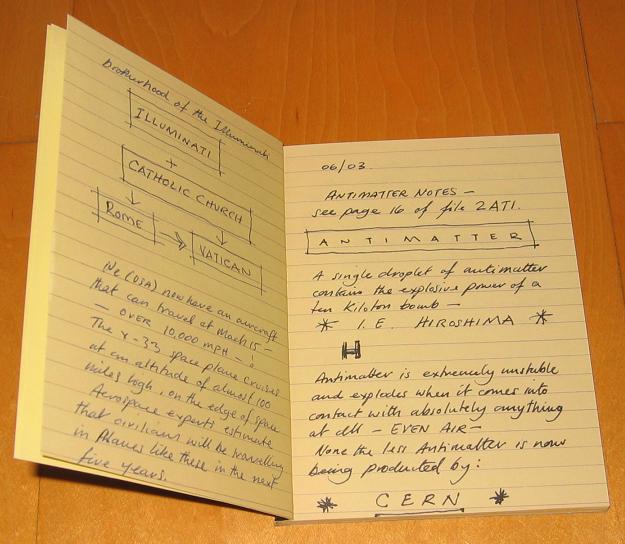 brotherhood of the Illuminati
ILLUMINATI
+
CATHOLIC CHURCH
ROME
VATICAN
We (USA) now have an aircraft
that can travel at Mach 15 —
— OVER 10,000 MPH — !
The X-33 space plane cruises
at an altitude of almost 100
miles high, on the edge of space
Aerospace experts estimate
that civilians will be travelling
in Planes like these in the next
five years.
06/03.
ANTIMATTER NOTES —
see page 16 of file 2 ATI.
ANTIMATTER
A single droplet of antimatter
contains the explosive power of a
ten Kiloton bomb —
* I.E. HIROSHIMA *
H
Antimatter is extremely unstable
and explodes when it comes into
contact with absolutely anything
at all — EVEN AIR —
None the less Antimatter is now
being producted by:
* CERN *